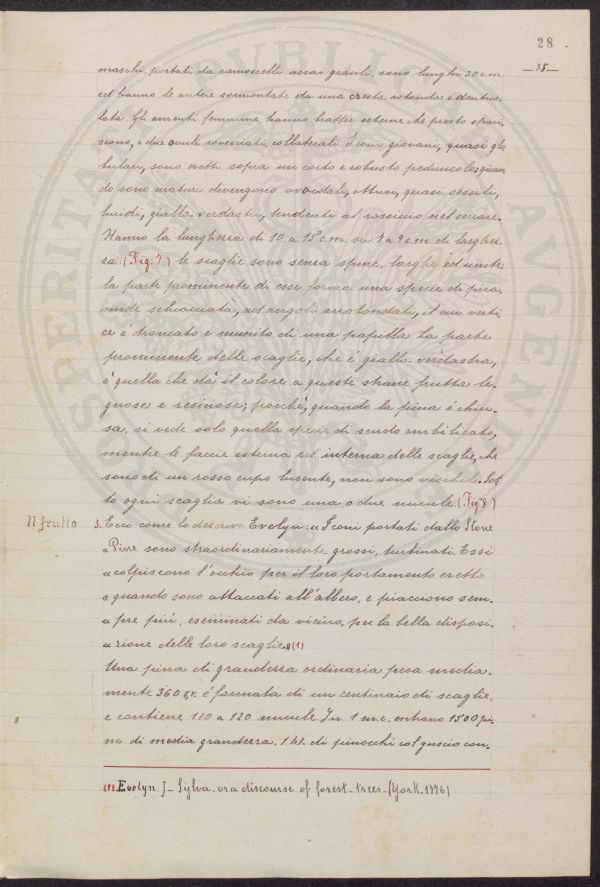 28
— 35 —
maschi, portati da ramoscelli assai gracili, sono lunghi 30 c.m.
ed hanno le antere sormontate da una cresta rotonda e dentico-
lata. Gli amenti feminine hanno brattee esterne che presto spari-
scono, e due ovuli rovesciati, collaterali. I coni giovani, quasi glo
bulari, sono eretti sopra un corto e robusto peduncolo; quan
do sono maturi divengono ovoidali, ottusi, quasi sessili,
lucidi, giallo-verdastri, tendenti al rossiccio nel seccare.
Hanno la lunghezza di 10 a 15 c.m. su 7 a 9 c.m. di larghez
za. (Fig. 7) le scaglie sono senza spine, larghe ed unite;
la parte prominente di esse forma una specie di pira-
mide schiacciata, ad angoli arrotondati, il cui verti
ce è troncato e munito di una papilla. La parte
prominente delle scaglie, che è giallo-verdastra,
è quella che dà il colore a queste strane frutta le-
gnose e resinose; poichè, quando la pina è chiu-
sa, si vede solo quella specie di scudo ombilicato,
mentre le faccie esterna ed interna delle scaglie, che
sono di un rosso cupo lucente, non sono visibili. Sot
to ogni scaglia vi sono una o due nucule. (Fig 8)
Il frutto
3. Ecco come lo descrive Evelyn: « I coni portati dallo Stone
« Pine sono straordinariamente grossi, turbinati. Essi
« colpiscono l'occhio per il loro portamento eretto
« quando sono attaccati all'albero, e piacciono sem-
« pre più, esaminati da vicino, per la bella disposi-
« zione delle loro scaglie » (1)
Una pina di grandezza ordinaria pesa media-
mente 360 gr. è formata di un centinaio di scaglie,
e contiene 110 a 120 nucule. In 1 m.c. entrano 1500 pi-
ne di media grandezza. 1 hl. di pinocchi col guscio con-
(1) Evelyn J_ Sylva. or a discourse of forest-trees_ (York. 1776)